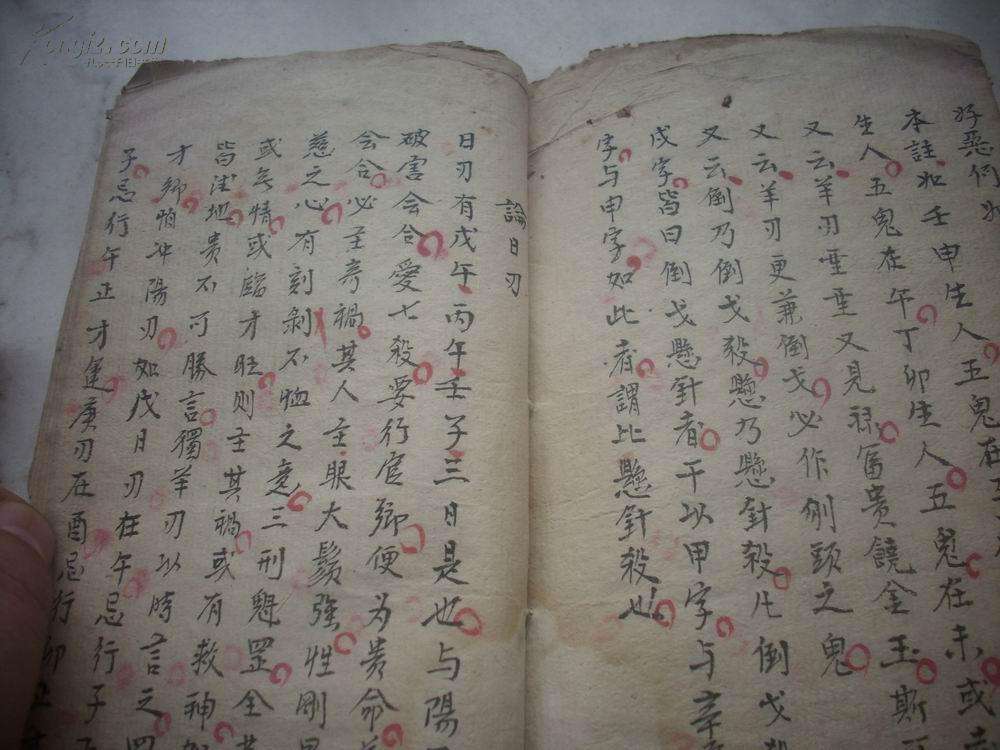 好惡何如
本註如壬申生人五鬼在
生人五鬼在午丁卯生人五鬼在未或
又云羊刃重重又見祿富貴饒金玉斯
又云羊刃更兼倒戈必作倒頭之鬼
又云倒乃倒戈殺懸乃懸針殺凡倒戈殺
戊字皆曰倒戈懸針者干以甲字与辛
字与申字如此者謂比懸針殺也
論日刃
日刃有戊午丙午壬子三日是也与陽
破害会合愛七殺要行官鄉便为贵命
会合必主竒禍其人主眼大鬚强性刚
慈之心有刻剝不恤之意三刑魁罡全
或无情或臨才旺则主其禍或有救神
皆得地贵不可勝言獨羊刃以時言之四
才鄉怕冲陽刃如戊日刃在午忌行子
子忌行午正才運庚刃在酉忌行卯正
Kongfz.com